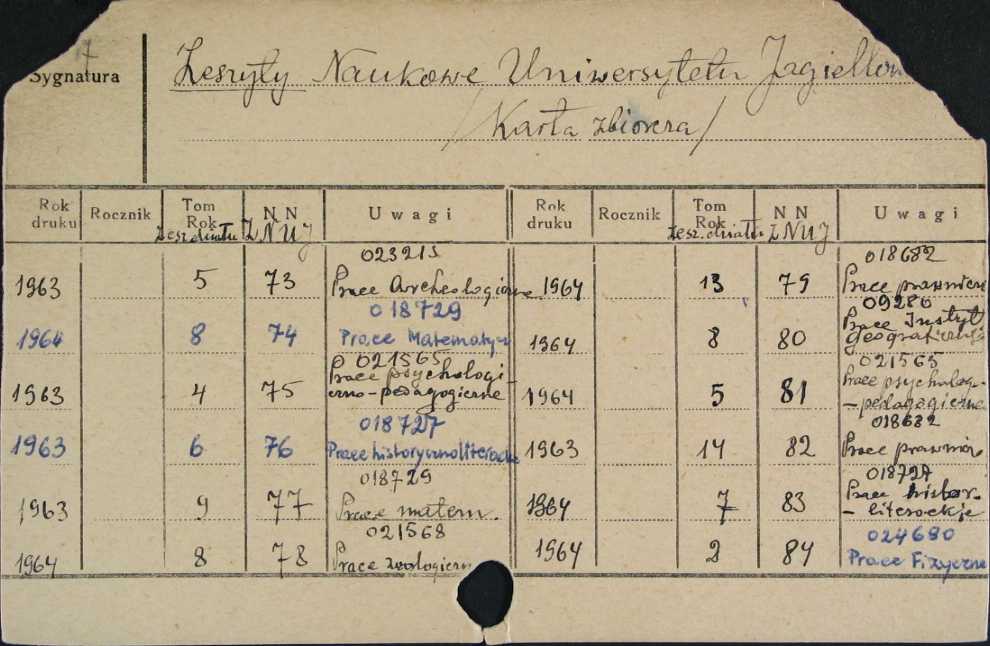 Sygnatura
Zeszyty Naukowe Uniwersytetu Jagiellon
/Karta zbiorcza/
Rok druku Rocznik Tom Rok Zesz. działu N N ZNUJ Uwagi Rok druku Rocznik Tom Rok Zesz. działu N N ZNUJ Uwagi
023215 018682
1963 5 73 Prace Archeologiczne 1964 13 79 Prace prawnicze
018729 09286
1964 8 74 Prace Matematycz 1964 8 80 Prace Instyt
Geograficzn
021565 021565
1963 4 75 Prace psychologi- 1964 5 81 Prace psycholog-
czno-pedagogiczne -pedagogiczne
018727 018682
1963 6 76 Prace historycznoliterackie 1963 14 82 Prace prawnicz
018729 018727
1963 9 77 Prace matem. 1964 7 83 Prace histor.
-literackie
021568 024680
1964 8 78 Prace zoologiczn 1964 2 84 Prace Fizyczne